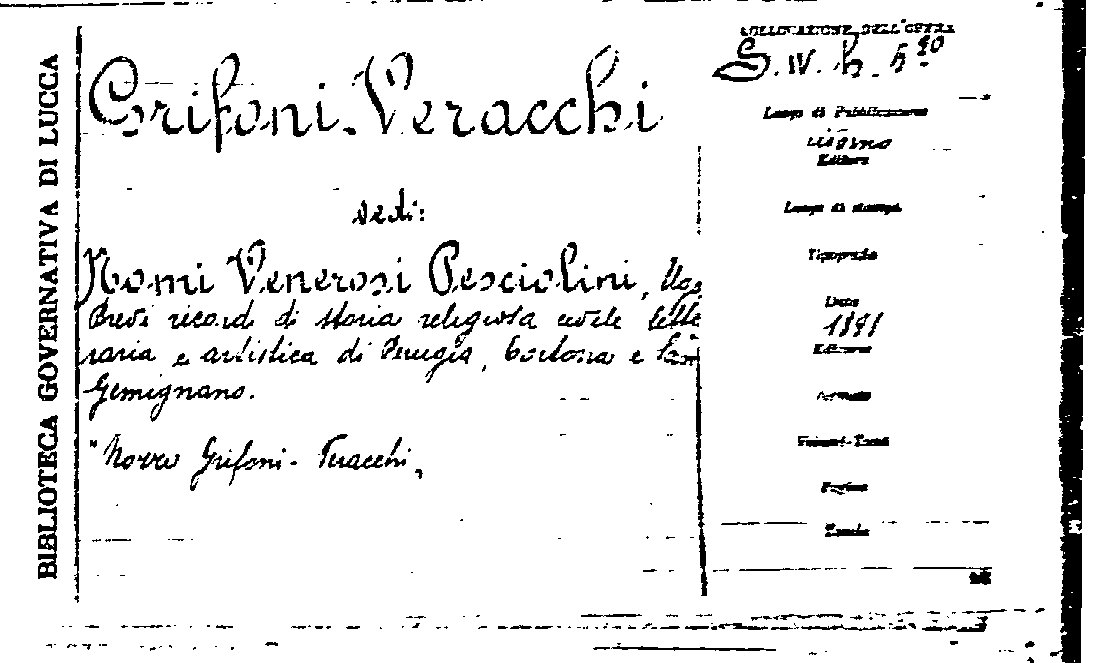 BIBLIOTECA GOVERNATIVA DI LUCCA
Grifoni-Veracchi
vedi:
Nomi Venerosi Pesciolini, Ugo
Brevi ricordi di storia religiosa civile lette
raria e artistica di Perugia, Cortona e San
Gemignano.
"Nozze Grifoni-Veracchi"
COLLOCAZIONE DELL'OPERA
S.IV. h. 5
Luogo di Pubblicazione
Editore
Luogo di stampa
Tipografia
Data
1891
Edizione
Formato
Volumi-Tomi
Pagine
Tavole